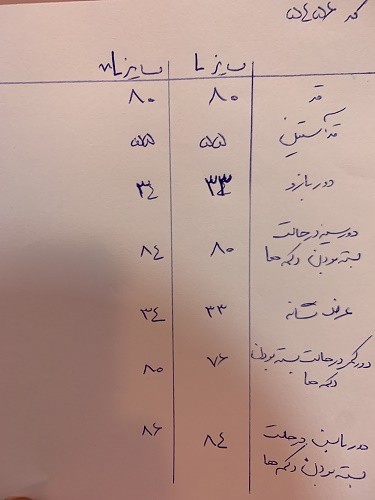 کد ۵۴۵۶
سایز L سایز XL
قد ۸۰ ۸۰
قد آستین ۵۵ ۵۵
دور بازو ۳۳ ۳۴
دور سینه در حالت
بسته بودن دکمه ها ۸۰ ۸۴
عرض شانه ۳۳ ۳۴
دور کمر در حالت بسته بودن
دکمه ها ۷۶ ۸۰
دور باسن در حالت
بسته بودن دکمه ها ۸۴ ۸۶